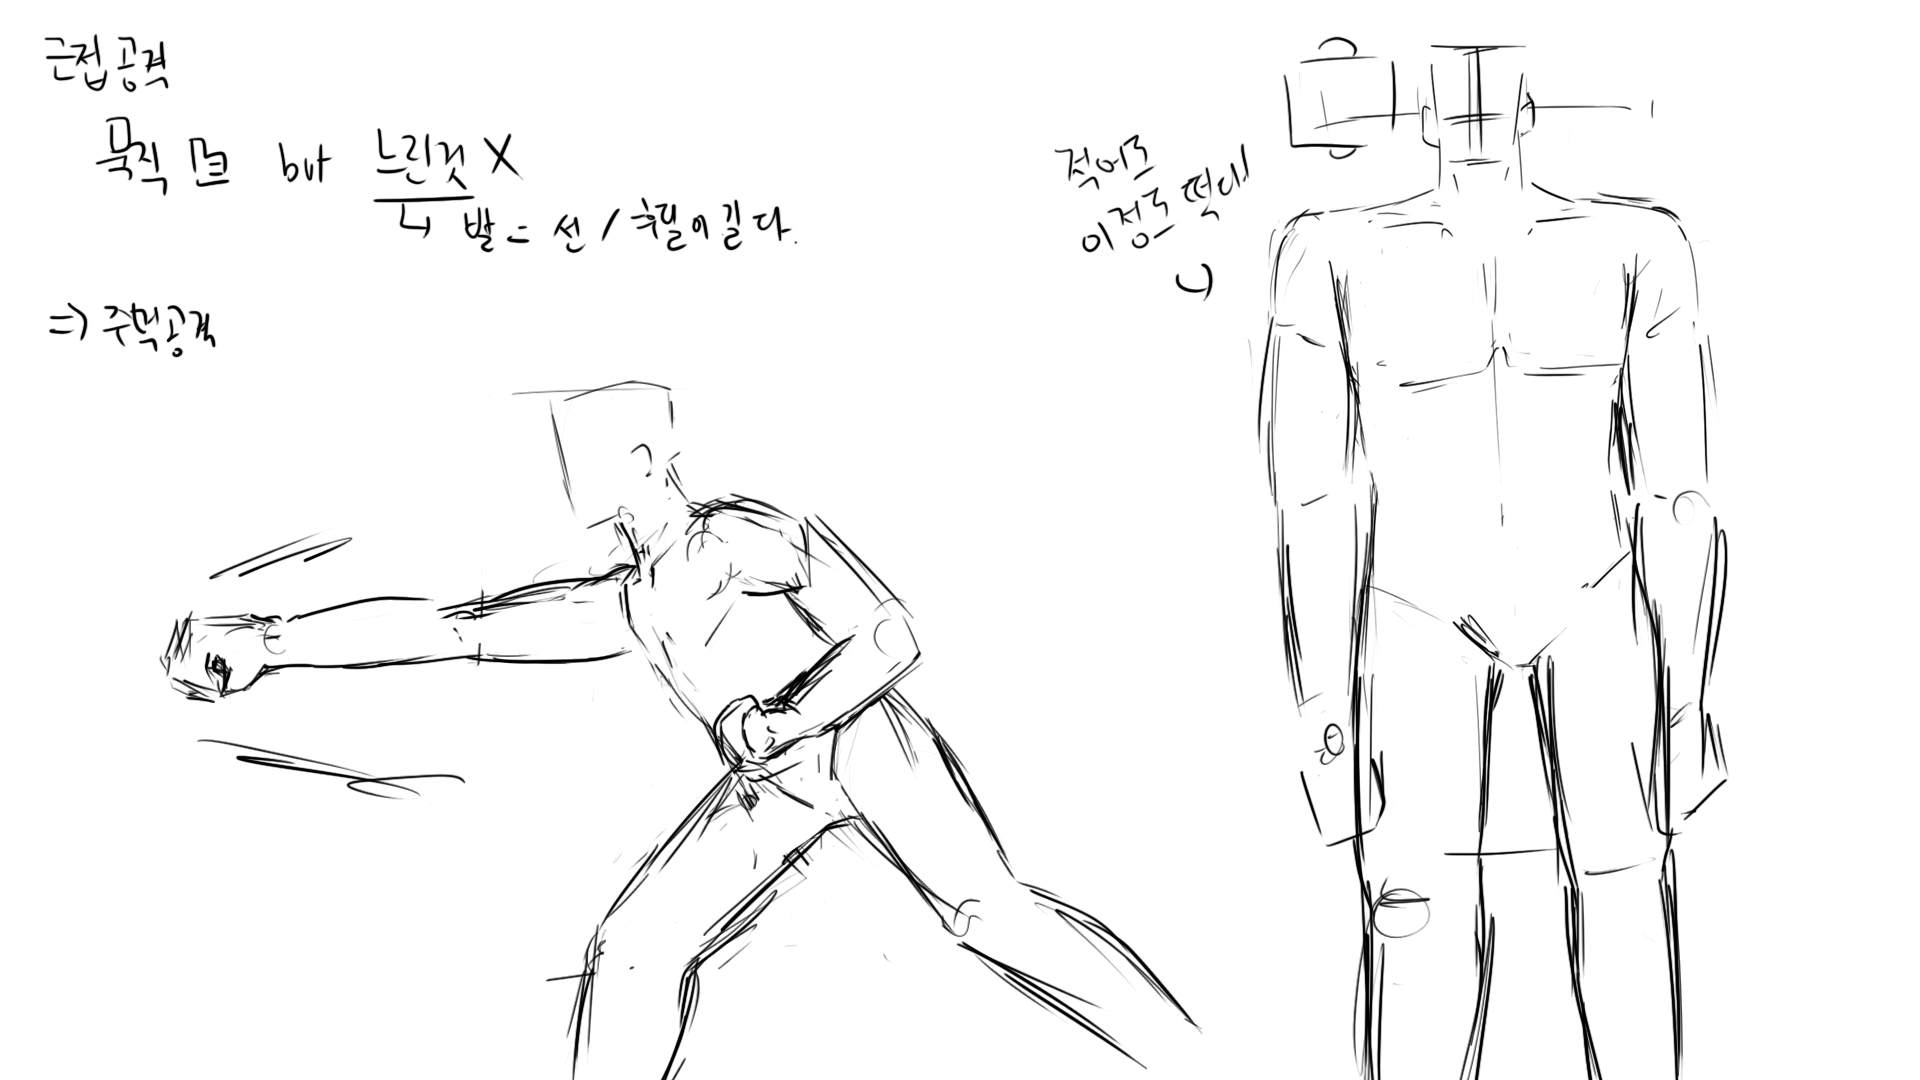 근접공격
묵직함 but 느린것 X
↳ 발 = 선 / 후딜이 길다.
=> 주먹공격
적어도
이정도 떡대